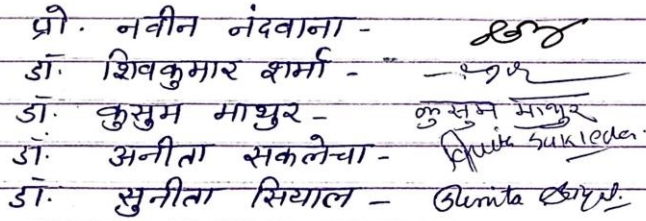 प्रो. नवीन नंदवाना -
डॉ. शिवकुमार शर्मा -
डॉ. कुसुम माथुर - कुसुम माथुर
डॉ. अनीता सकलेचा - Anita Sukleda.
डॉ. सुनीता सियाल - Sunita